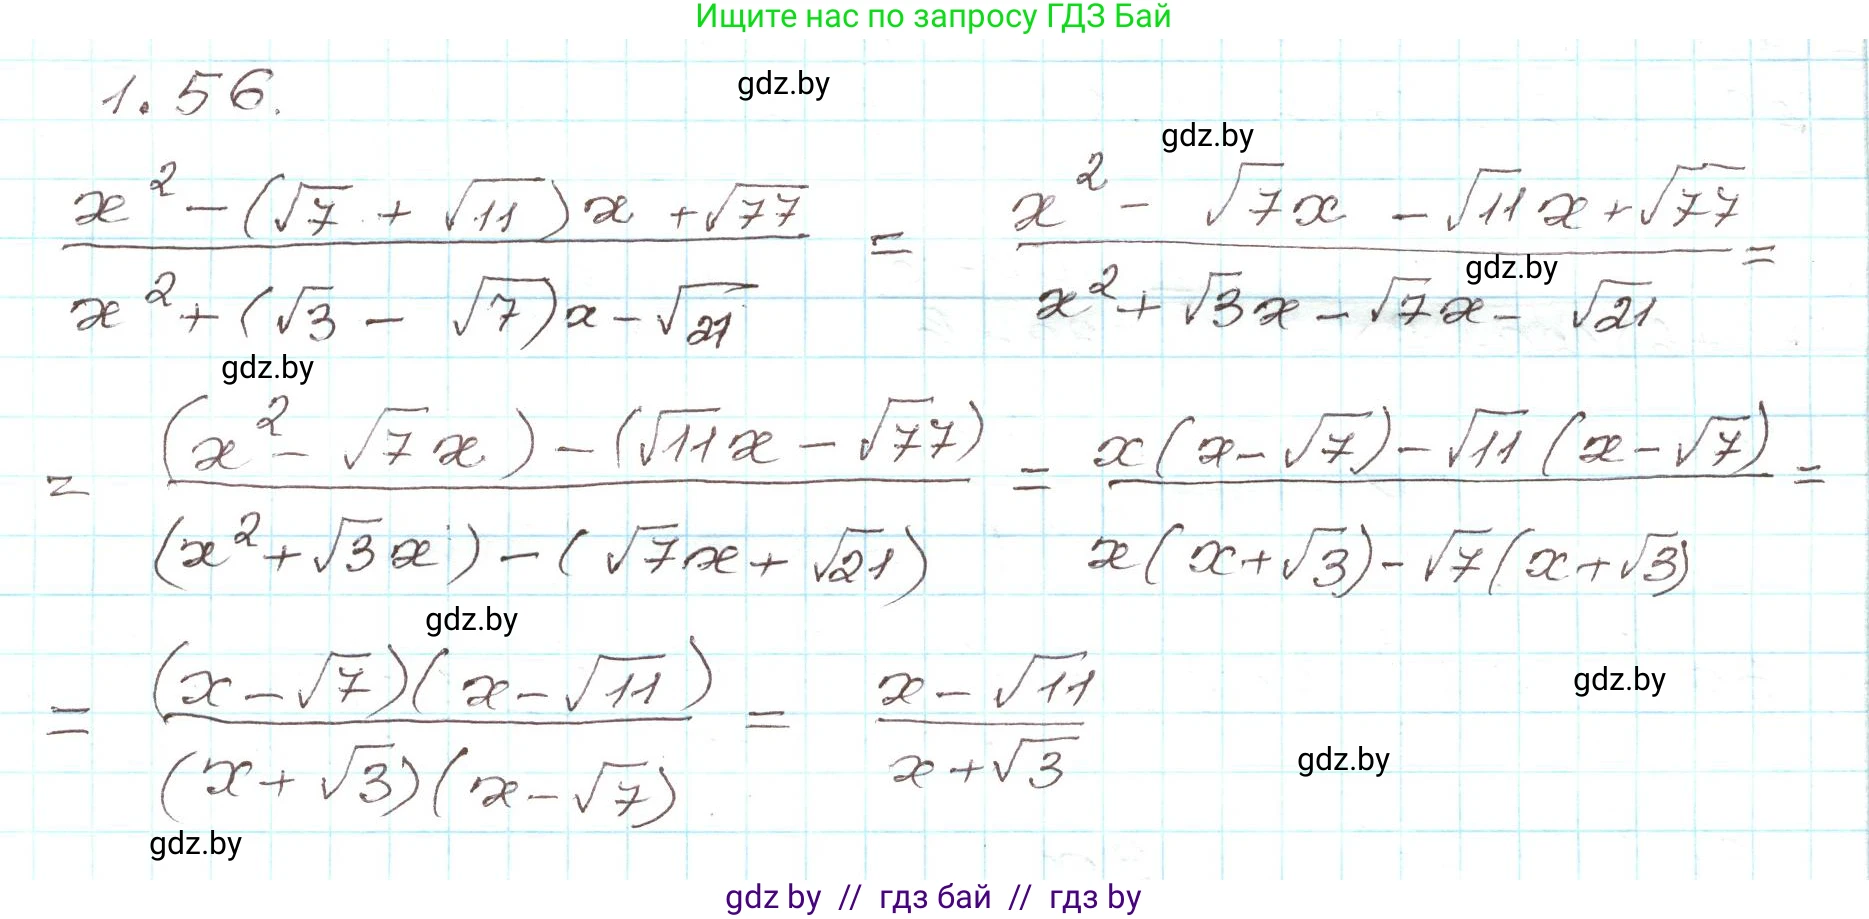 Ищите нас по запросу ГДЗ Бай
1.56.
gdz.by
gdz.by
(x² - (√7 + √11)x + √77) / (x² + (√3 - √7)x - √21) = (x² - √7x - √11x + √77) / (x² + √3x - √7x - √21) =
gdz.by
gdz.by
= ((x² - √7x) - (√11x - √77)) / ((x² + √3x) - (√7x + √21)) = (x(x - √7) - √11(x - √7)) / (x(x + √3) - √7(x + √3)) =
gdz.by
= ((x - √7)(x - √11)) / ((x + √3)(x - √7)) = (x - √11) / (x + √3)
gdz.by
gdz.by
gdz.by
gdz by // гдз бай // гдз by